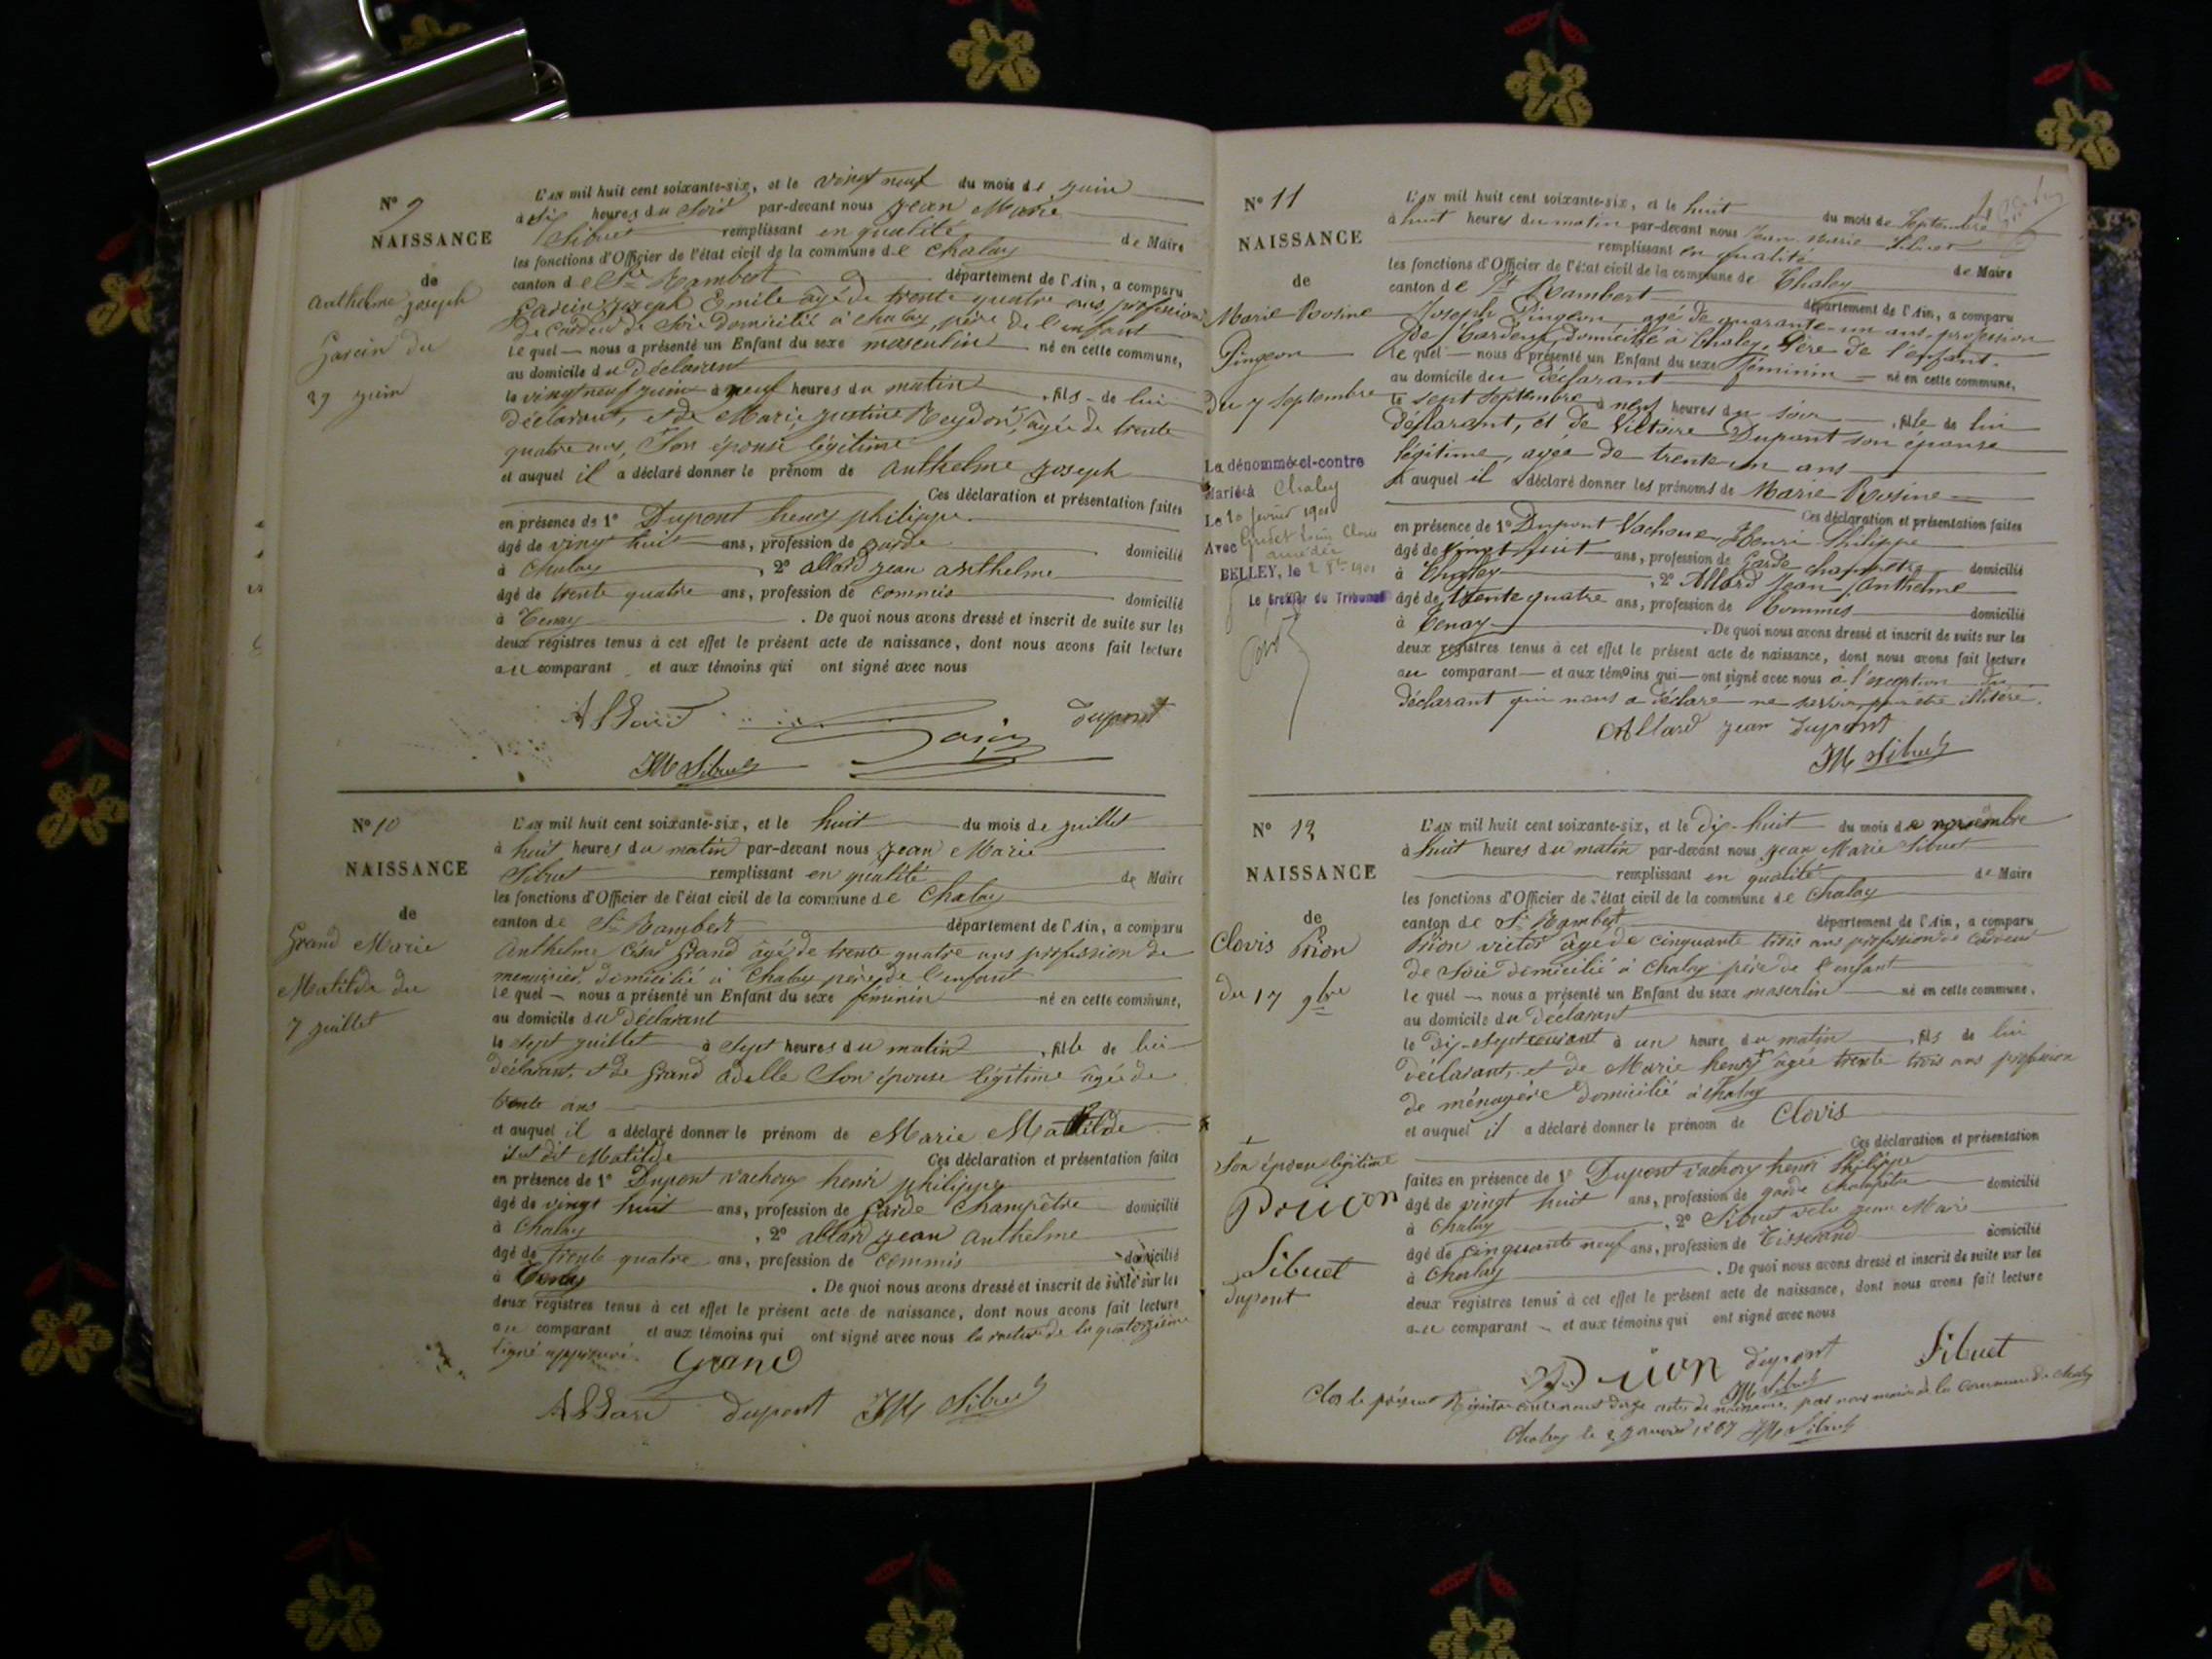 N° 9
NAISSANCE
de
Anthelme Joseph
Garcin du
29 juin
L'AN mil huit cent soixante-six, et le vingt neuf du mois de juin
à six heures du soir par-devant nous Jean Marie
Sibuet remplissant en qualité de Maire
les fonctions d'Officier de l'état civil de la commune de Chaley
canton de St Rambert département de l'Ain, a comparu
Garcin Joseph Emile âgé de trente quatre ans, profession
de cardeur de soie domicilié à Chaley, père de l'enfant
le quel — nous a présenté un Enfant du sexe masculin né en cette commune,
au domicile du déclarant
le vingt neuf juin à neuf heures du matin , fils de lui
déclarant, et de Marie Justine Reydon, âgée de trente
quatre ans, Son épouse légitime
et auquel il a déclaré donner le prénom de Anthelme Joseph
Ces déclaration et présentation faites
en présence de 1° Dupont henry philippe
âgé de vingt huit ans, profession de garde domicilié
à Chaley , 2° allard jean anthelme
âgé de trente quatre ans, profession de commis domicilié
à Tenay . De quoi nous avons dressé et inscrit de suite sur les
deux registres tenus à cet effet le présent acte de naissance, dont nous avons fait lecture
au comparant et aux témoins qui ont signé avec nous
Allard Garcin dupont
JM Sibuet
N° 10
NAISSANCE
de
Grand Marie
Matilde du
7 juillet
L'AN mil huit cent soixante-six, et le huit du mois de juillet
à huit heures du matin par-devant nous Jean Marie
Sibuet remplissant en qualité de Maire
les fonctions d'Officier de l'état civil de la commune de Chaley
canton de St Rambert département de l'Ain, a comparu
Anthelme César Grand âgé de trente quatre ans profession de
menuisier, domicilié à Chaley père de l'enfant
le quel — nous a présenté un Enfant du sexe féminin né en cette commune,
au domicile du déclarant
le sept juillet à sept heures du matin , fille de lui
déclarant, et de Grand Adelle Son épouse légitime âgée de
trente ans
et auquel il a déclaré donner le prénom de Marie Matilde
il est dit Matilde Ces déclaration et présentation faites
en présence de 1° Dupont vachoux henri philippe
âgé de vingt huit ans, profession de garde Champêtre domicilié
à Chaley , 2° allard jean anthelme
âgé de trente quatre ans, profession de commis domicilié
à Tenay . De quoi nous avons dressé et inscrit de suite sur les
deux registres tenus à cet effet le présent acte de naissance, dont nous avons fait lecture
au comparant et aux témoins qui ont signé avec nous la rature de la quatorzième
ligne approuvé.
Grand
Allard dupont JM Sibuet
N° 11
NAISSANCE
de
Marie Rosine
Pingeon
du 7 septembre
La dénommée ci-contre
Mariée à Chaley
Le 10 février 1900
Avec Louis
BELLEY, le 1901
Le Greffier du Tribunal
L'AN mil huit cent soixante-six, et le huit du mois de Septembre
à huit heures du matin par-devant nous Jean Marie Sibuet
remplissant en qualité de Maire
les fonctions d'Officier de l'état civil de la commune de Chaley
canton de St Rambert département de l'Ain, a comparu
Joseph Pingeon, agé de quarante-un ans, profession
de Cardeur, domicilié à Chaley, Père de l'enfant.
le quel — nous a présenté un Enfant du sexe féminin — né en cette commune,
au domicile du déclarant
le sept septembre à neuf heures du soir , fille de lui
déclarant, et de Victoire Dupont son épouse
légitime, agée de trente un ans
et auquel il a déclaré donner les prénoms de Marie Rosine
Ces déclaration et présentation faites
en présence de 1° Dupont Vachoux Henri Philippe
âgé de vingt huit ans, profession de Garde champêtre domicilié
à Chaley , 2° Allard Jean Anthelme
âgé de trente quatre ans, profession de Commis domicilié
à Tenay . De quoi nous avons dressé et inscrit de suite sur les
deux registres tenus à cet effet le présent acte de naissance, dont nous avons fait lecture
au comparant — et aux témoins qui — ont signé avec nous à l'exception du
déclarant qui nous a déclaré ne savoir pour être illitéré.
Allard jean dupont
JM Sibuet
N° 12
NAISSANCE
de
Clovis Prion
du 17 9bre
+
Son épouse légitime
Prion
Sibuet
dupont
L'AN mil huit cent soixante-six, et le dix-huit du mois de novembre
à huit heures du matin par-devant nous Jean Marie Sibuet
remplissant en qualité de Maire
les fonctions d'Officier de l'état civil de la commune de Chaley
canton de St Rambert département de l'Ain, a comparu
Prion victor âgé de cinquante trois ans profession de cardeur
de soie domicilié à Chaley père de l'enfant
le quel — nous a présenté un Enfant du sexe masculin né en cette commune,
au domicile du déclarant
le dix-sept courant à un heure du matin , fils de lui
déclarant, et de Marie henry + âgée trente trois ans profession
de ménagère domicilié à Chaley
et auquel il a déclaré donner le prénom de Clovis
Ces déclaration et présentation
faites en présence de 1° Dupont vachoux henri Philippe
âgé de vingt huit ans, profession de garde champêtre domicilié
à Chaley , 2° Sibuet jean Marie
âgé de cinquante neuf ans, profession de Tisserand domicilié
à Chaley . De quoi nous avons dressé et inscrit de suite sur les
deux registres tenus à cet effet le présent acte de naissance, dont nous avons fait lecture
au comparant — et aux témoins qui ont signé avec nous
Prion dupont Sibuet
JM Sibuet
Clos le présent Registre contenant douze actes de naissance, par nous maire de la commune de Chaley
Chaley le 2 janvier 1867 JM Sibuet